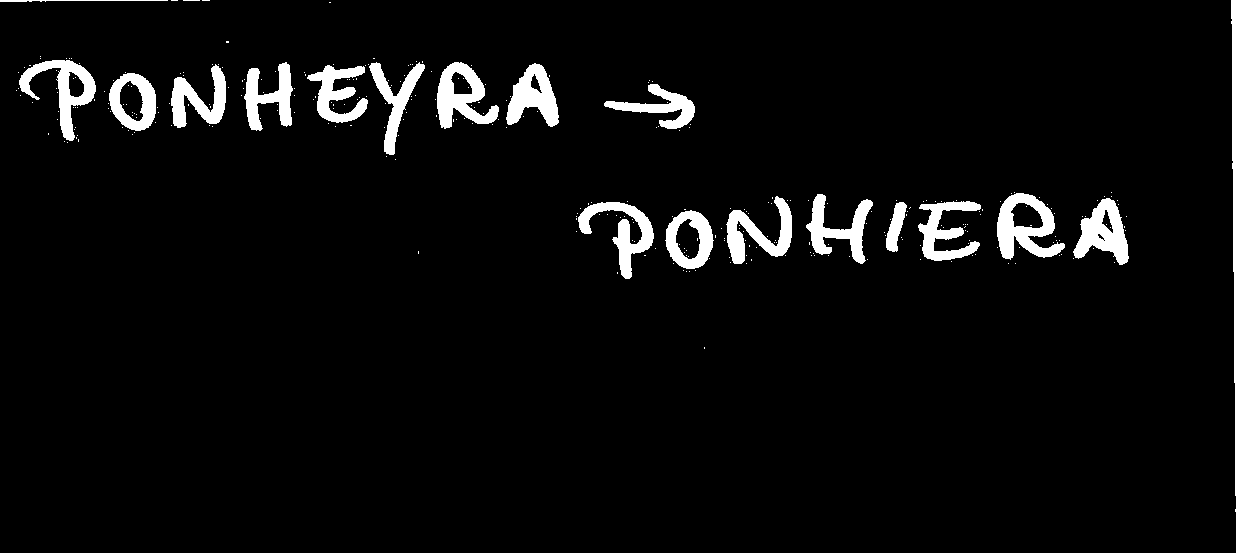 PONHEYRA →
PONHIERA